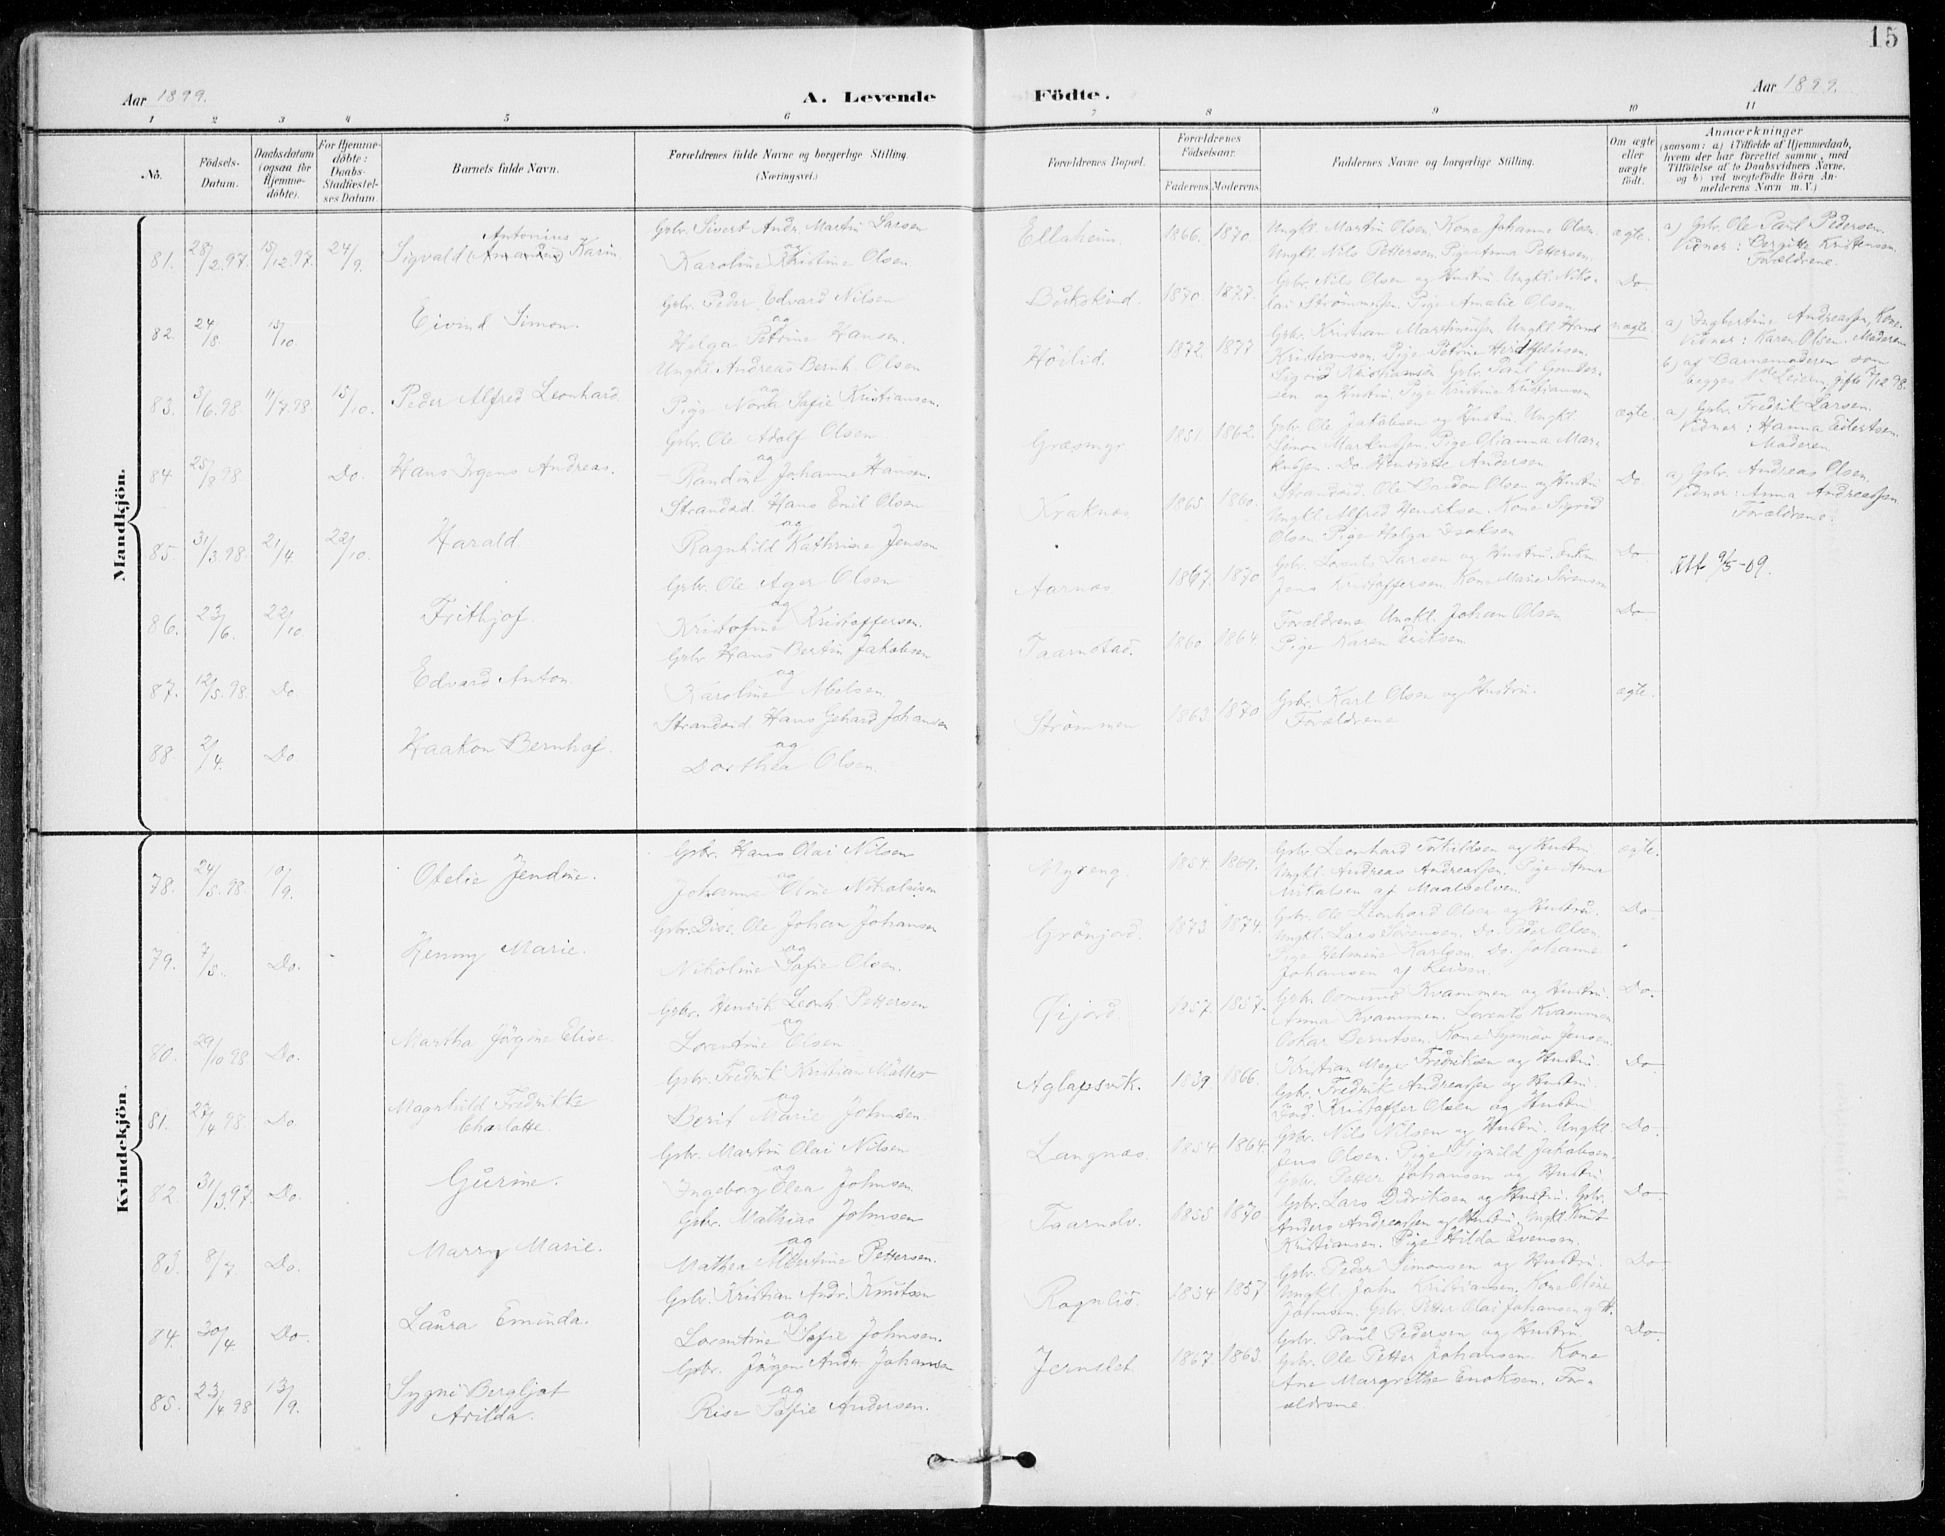 15
Aar 1899.
A. Levende Födte.
Aar 1899.
1 2 3 4 5 6 7 8 9 10 11
No.
Födsels-Datum.
Daabsdatum (ogsaa for Hjemmedöbte).
For Hjemmedöbte: Daabs-Stadfæstelses Datum.
Barnets fulde Navn.
Forældrenes fulde Navne og borgerlige Stilling.
(Næringsvei.)
Forældrenes Bopæl.
Forældrenes Födselsaar.
Faderens. Moderens.
Faddernes Navne og borgerlige Stilling.
Om ægte eller uægte födt.
Anmærkninger
(saasom: a) i Tilfælde af Hjemmedaab, hvem der har forrettet samme, med Tilföielse af to Daabsvidners Navne, og b) ved uægtefödte Börn Anmelderens Navn m. V.)
Mandkjön.
81. 28/2.97. 15/12.97. 24/9. Sigvald Antonius Karin
Gbr. Sivert Andr. Martin Larsen
og
Karoline Kristine Olsen
Ellaheim. 1866. 1870.
Ungkl. Martin Olsen. Kone Johanne Olsen.
Ungkl. Nils Pettersen. Pige Anna Pettersen.
ægte.
a) Gbr. Ole Paul Pedersen.
Vidner: Bergitte Kristensen.
Forældrene.
82. 24/8. 15/10. Eivind Simon.
Gbr. Peder Edvard Nilsen
og
Helga Petrine Hansen.
1870. 1877.
Gbr. Nils Olsen og Hustru. Ungkl. Niko-
lai Strømmesen. Pige Amalie Olsen.
Do.
83. 3/6.98. 11/7.98. 15/10. Peder Alfred Leonhard.
Ungkl. Andreas Bernh. Olsen
og
Pige Nora Sofie Kristiansen.
Höilid. 1872. 1877
Gbr. Kristian Martinusen. Ungkl. Hans
Kristiansen. Pige Petrine
Sigvid Kristiansen Gbr. Paul Gunder-
sen og Hustru. Pige Kristine Kristiansen
uægte.
a) Ingbertine Andreassen, Kone.
Vidner: Karen Olsen. Moderen
b) af Barnemoderen som
begges No 1 Leierm. gifte 7/12 98.
84. 25/8 98 Do. Hans Irgens Andreas.
Gbr. Ole Adolf Olsen
og
Randine Johanne Hansen.
Græsmyr. 1851. 1862.
Gbr. Ole Jakobsen og Hustru. Ungkl.
Simon Martinssen. Pige Olianna Mar-
Do. Andersen
ægte.
a) Gbr. Fredrik Larsen.
Vidner: Hanna Eilertsen.
Moderen.
85. 31/3.98. 21/4. 22/10. Harald.
Strandsd. Hans Emil Olsen
og
Ragnhild Kathrine Jensen
Kraknæs. 1865 1860.
Strandsid. Ole Olsen og Hustru
Ungkl. Alfred Henriksen. Kone Sigrid
Olsen. Pige Helga Isaksen
Do.
a) Gbr. Andreas Olsen.
Vidner: Anna Andreassen
Forældrene.
86. 23/6. 22/10 Frithjof.
Gbr. Ole Ager Olsen
og
Kristofine Kristoffersen.
Aarnæs. 1867. 1870
Gbr. Lorents Larsen og Hustru. Enkm.
Jens Kristoffersen. Kone Marie Sörensen
Do
Att 9/5-09.
87. 12/5.98. Do. Edvard Anton.
Gbr Hans Bertin Jakobsen
og
Karoline Nielsen.
Taarnstad. 1860 1864.
Forældrene Ungkl. Johan Olsen
Pige Karen Eriksen
Do
88. 2/4. Do Haakon Bernhof.
Strandsd. Hans Gehard Johansen
og
Dorthea Olsen.
Strömmen 1863 1870
Gbr. Karl Olsen og Hustru.
Forældrene
ægte.
Kvindekjön.
78. 24/5.98. 10/9. Ofelie Jendine.
Gbr. Hans Olai Nilsen
og
Johanne Oline Nikolaisen
Myreng. 1854. 1869.
Gbr. Leonhard Torkildsen og Hustru
Ungkl. Andreas Andreassen. Pige Anna
Mikalsen af Maalselven.
ægte.
79. 7/5. Do. Henny Marie.
Gbr. Dise. Ole Johan Johansen
og
Nikoline Sofie Olsen.
Grönjord. 1873 1874.
Gbr. Ole Leonhard Olsen og Hustru.
Ungkl. Lars Sörensen. Do. Peder Olsen.
Pige Helmine Karlsen. Do. Johanne
Johansen af Reisen.
Do
80. 29/10 98. Do. Martha Jörgine Elise.
Gbr. Henrik Leonh. Pettersen
og
Lorentine Olsen.
Gijord. 1857. 1857.
Gbr. Kvammen og Hustru.
Anna Kvammen. Lorents Kvammen
Oskar Berntsen. Kone Jensen
Do.
81. 27/4 98. Do. Magnhild Fredrikke
Charlotte.
Gbr. Fredrik Kristian Müller
og
Berit Marie Johnsen.
Aglapsvik. 1839 1866.
Kristian Meyer Fredriksen og Hustru.
Gbr. Fredrik Andreassen og Hustru
Ford. Kristoffer Olsen og Hustru
Do
82. 31/3.97. Do. Gurine.
Gbr. Martin Olai Nilsen
og
Ingeborg Olea Johnsen
Langnæs. 1854. 1864.
Gbr. Nils Nilsen og Hustru. Ungkl.
Jens Olsen. Pige Signild Jakobsen.
Gbr. Petter Johansen og Hustru
Do.
83. 8/7. Do. Marry Marie.
Gbr. Mathias Johnsen
og
Mathea Albertine Pettersen.
Taarnelv. 1855 1870
Gbr. Lars Didriksen og Hustru. Gbr.
Anders Andreassen og Hustru. Ungkl. Knut
Kristiansen. Pige Hilda Evensen.
Do
84. 30/4 Do. Laura Eminda.
Gbr. Kristian Andr. Knutsen
og
Lorentine Sofie Johnsen.
Rognlis. 1854 1857
Gbr. Peder Simonsen og Hustru.
Ungkl. John Kristiansen. Kone Oline
Johnsen. Gbr. Petter Olai Johansen og H.
Do
85. 23/4 98 13/9. Sygni Bergljot
Arilda.
Gbr. Jörgen Andr. Johansen
og
Rise Sofie Andersen.
Jernslet 1867. 1863.
Gbr. Paul Pedersen og Hustru.
Gbr. Ole Petter Johansen. Kone
Ane Margrethe Enoksen. For-
ældrene.
Do.